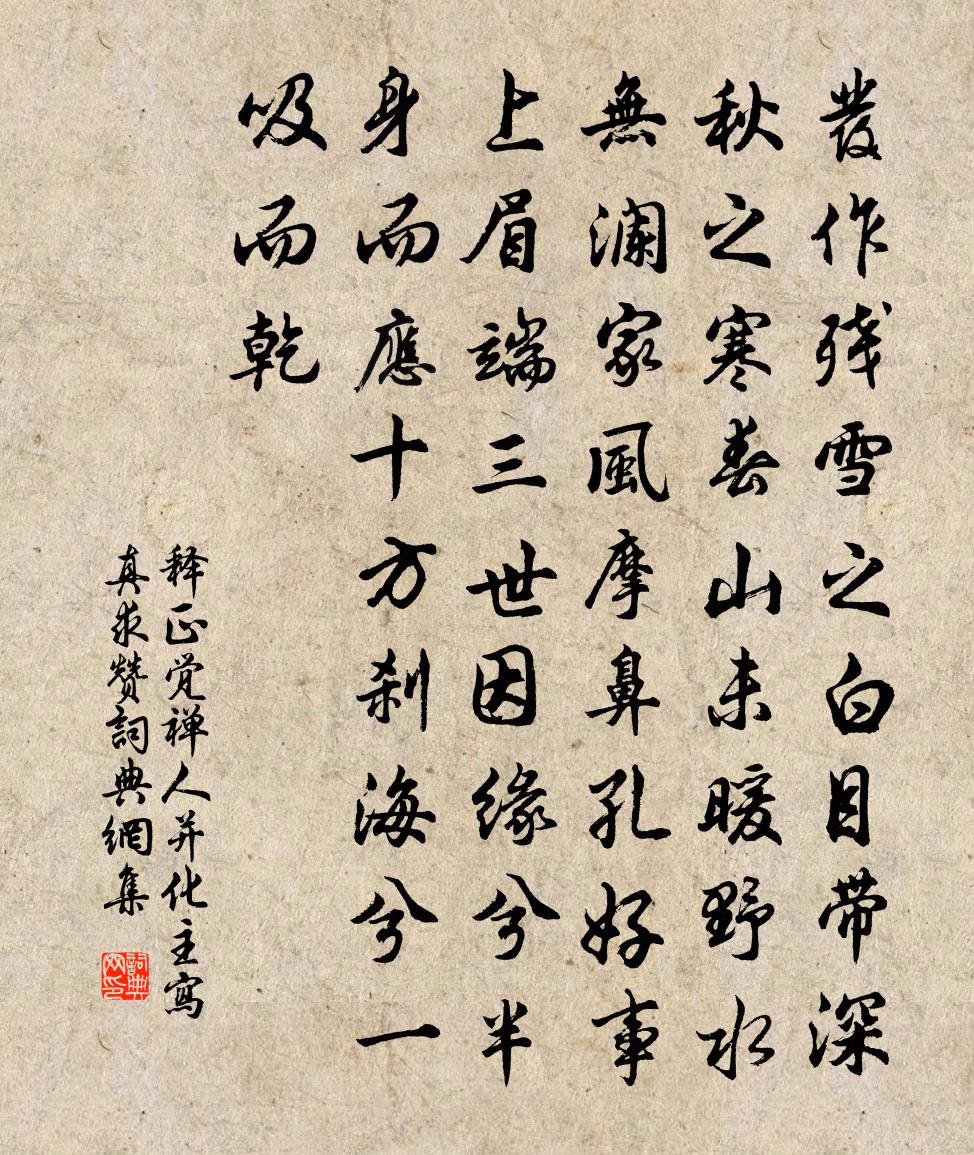 發作残雪之白目带深
秋之寒春山未暖野水
無澜家風摩鼻孔好事
上眉端三世因緣兮半
身而應十方刹海兮一
吸而乾
释正觉禅人并化主寫
真求赞詞典網集
詞典
网印